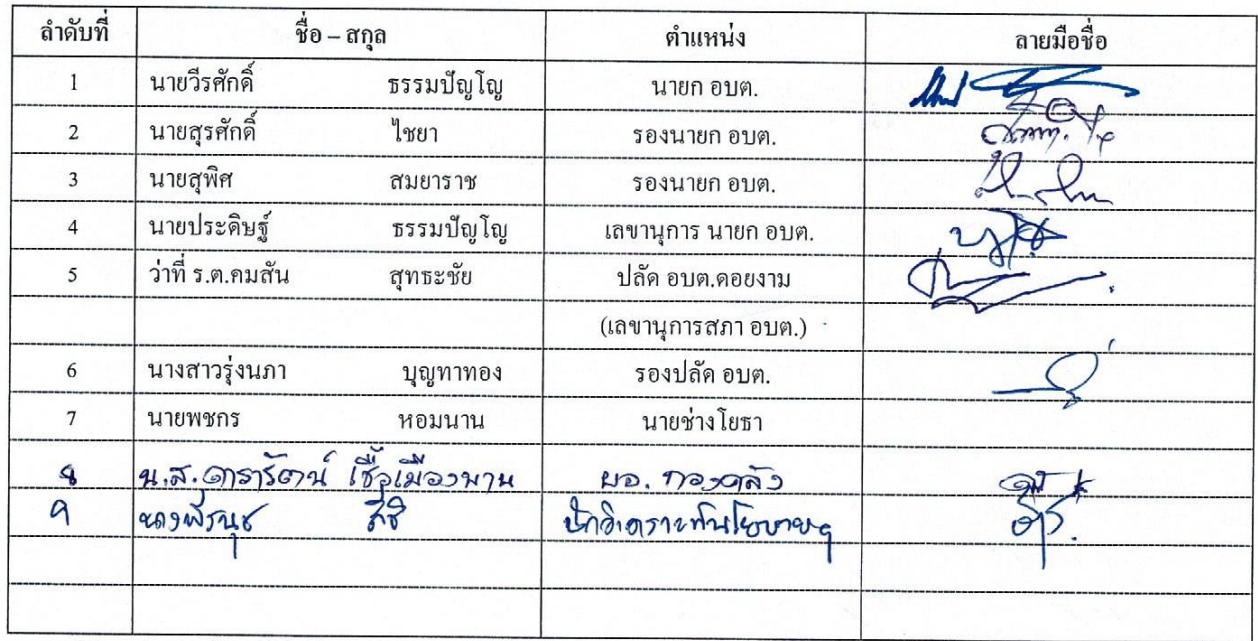 ลำดับที่ ชื่อ – สกุล ตำแหน่ง ลายมือชื่อ
1 นายวีรศักดิ์ ธรรมปัญโญ นายก อบต.
2 นายสุรศักดิ์ ไชยา รองนายก อบต.
3 นายสุพิศ สมยาราช รองนายก อบต.
4 นายประดิษฐ์ ธรรมปัญโญ เลขานุการ นายก อบต.
5 ว่าที่ ร.ต.คมสัน สุทธะชัย ปลัด อบต.ดอยงาม
(เลขานุการสภา อบต.)
6 นางสาวรุ่งนภา บุญทาทอง รองปลัด อบต.
7 นายพชกร หอมนาน นายช่างโยธา
8 น.ส.ดารารัตน์ เชื้อเมืองพาน ผอ. กองคลัง
9 นางพีรนุช นักวิเคราะห์นโยบายฯ